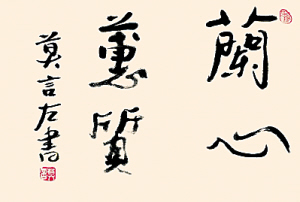 蘭心
蕙質
莫言左書